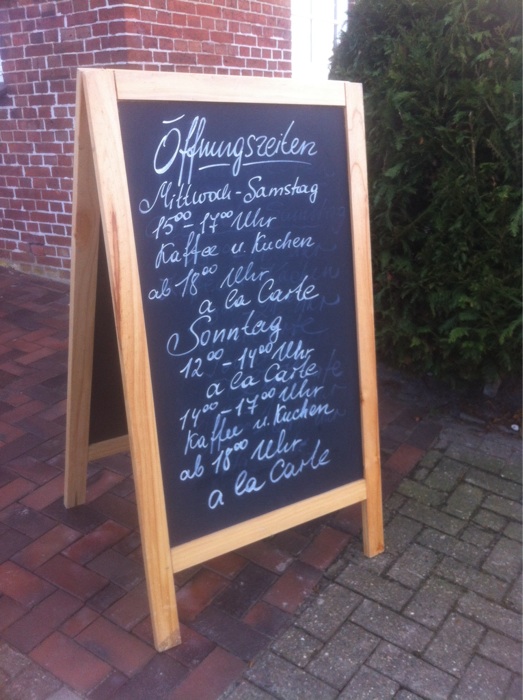 Öffnungszeiten
Mittwoch-Samstag
15⁰⁰-17⁰⁰ Uhr
Kaffee u. Kuchen
ab 18⁰⁰ Uhr
a la Carte
Sonntag
12⁰⁰-14⁰⁰ Uhr
a la Carte
14⁰⁰-17⁰⁰ Uhr
Kaffee u. Kuchen
ab 18⁰⁰ Uhr
a la Carte